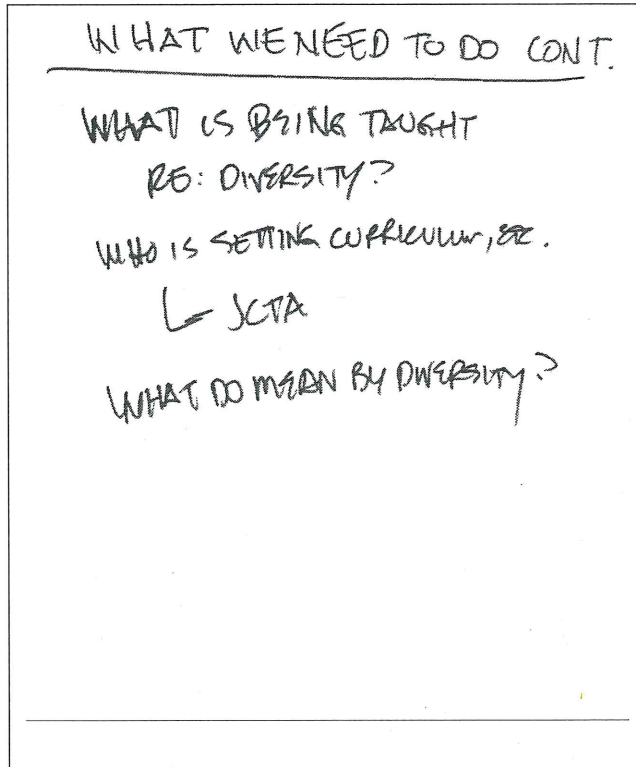 WHAT WE NEED TO DO CONT.
WHAT IS BEING TAUGHT
RE: DIVERSITY?
WHO IS SETTING CURRICULUM, ETC.
JCTA
WHAT DO MEAN BY DIVERSITY?